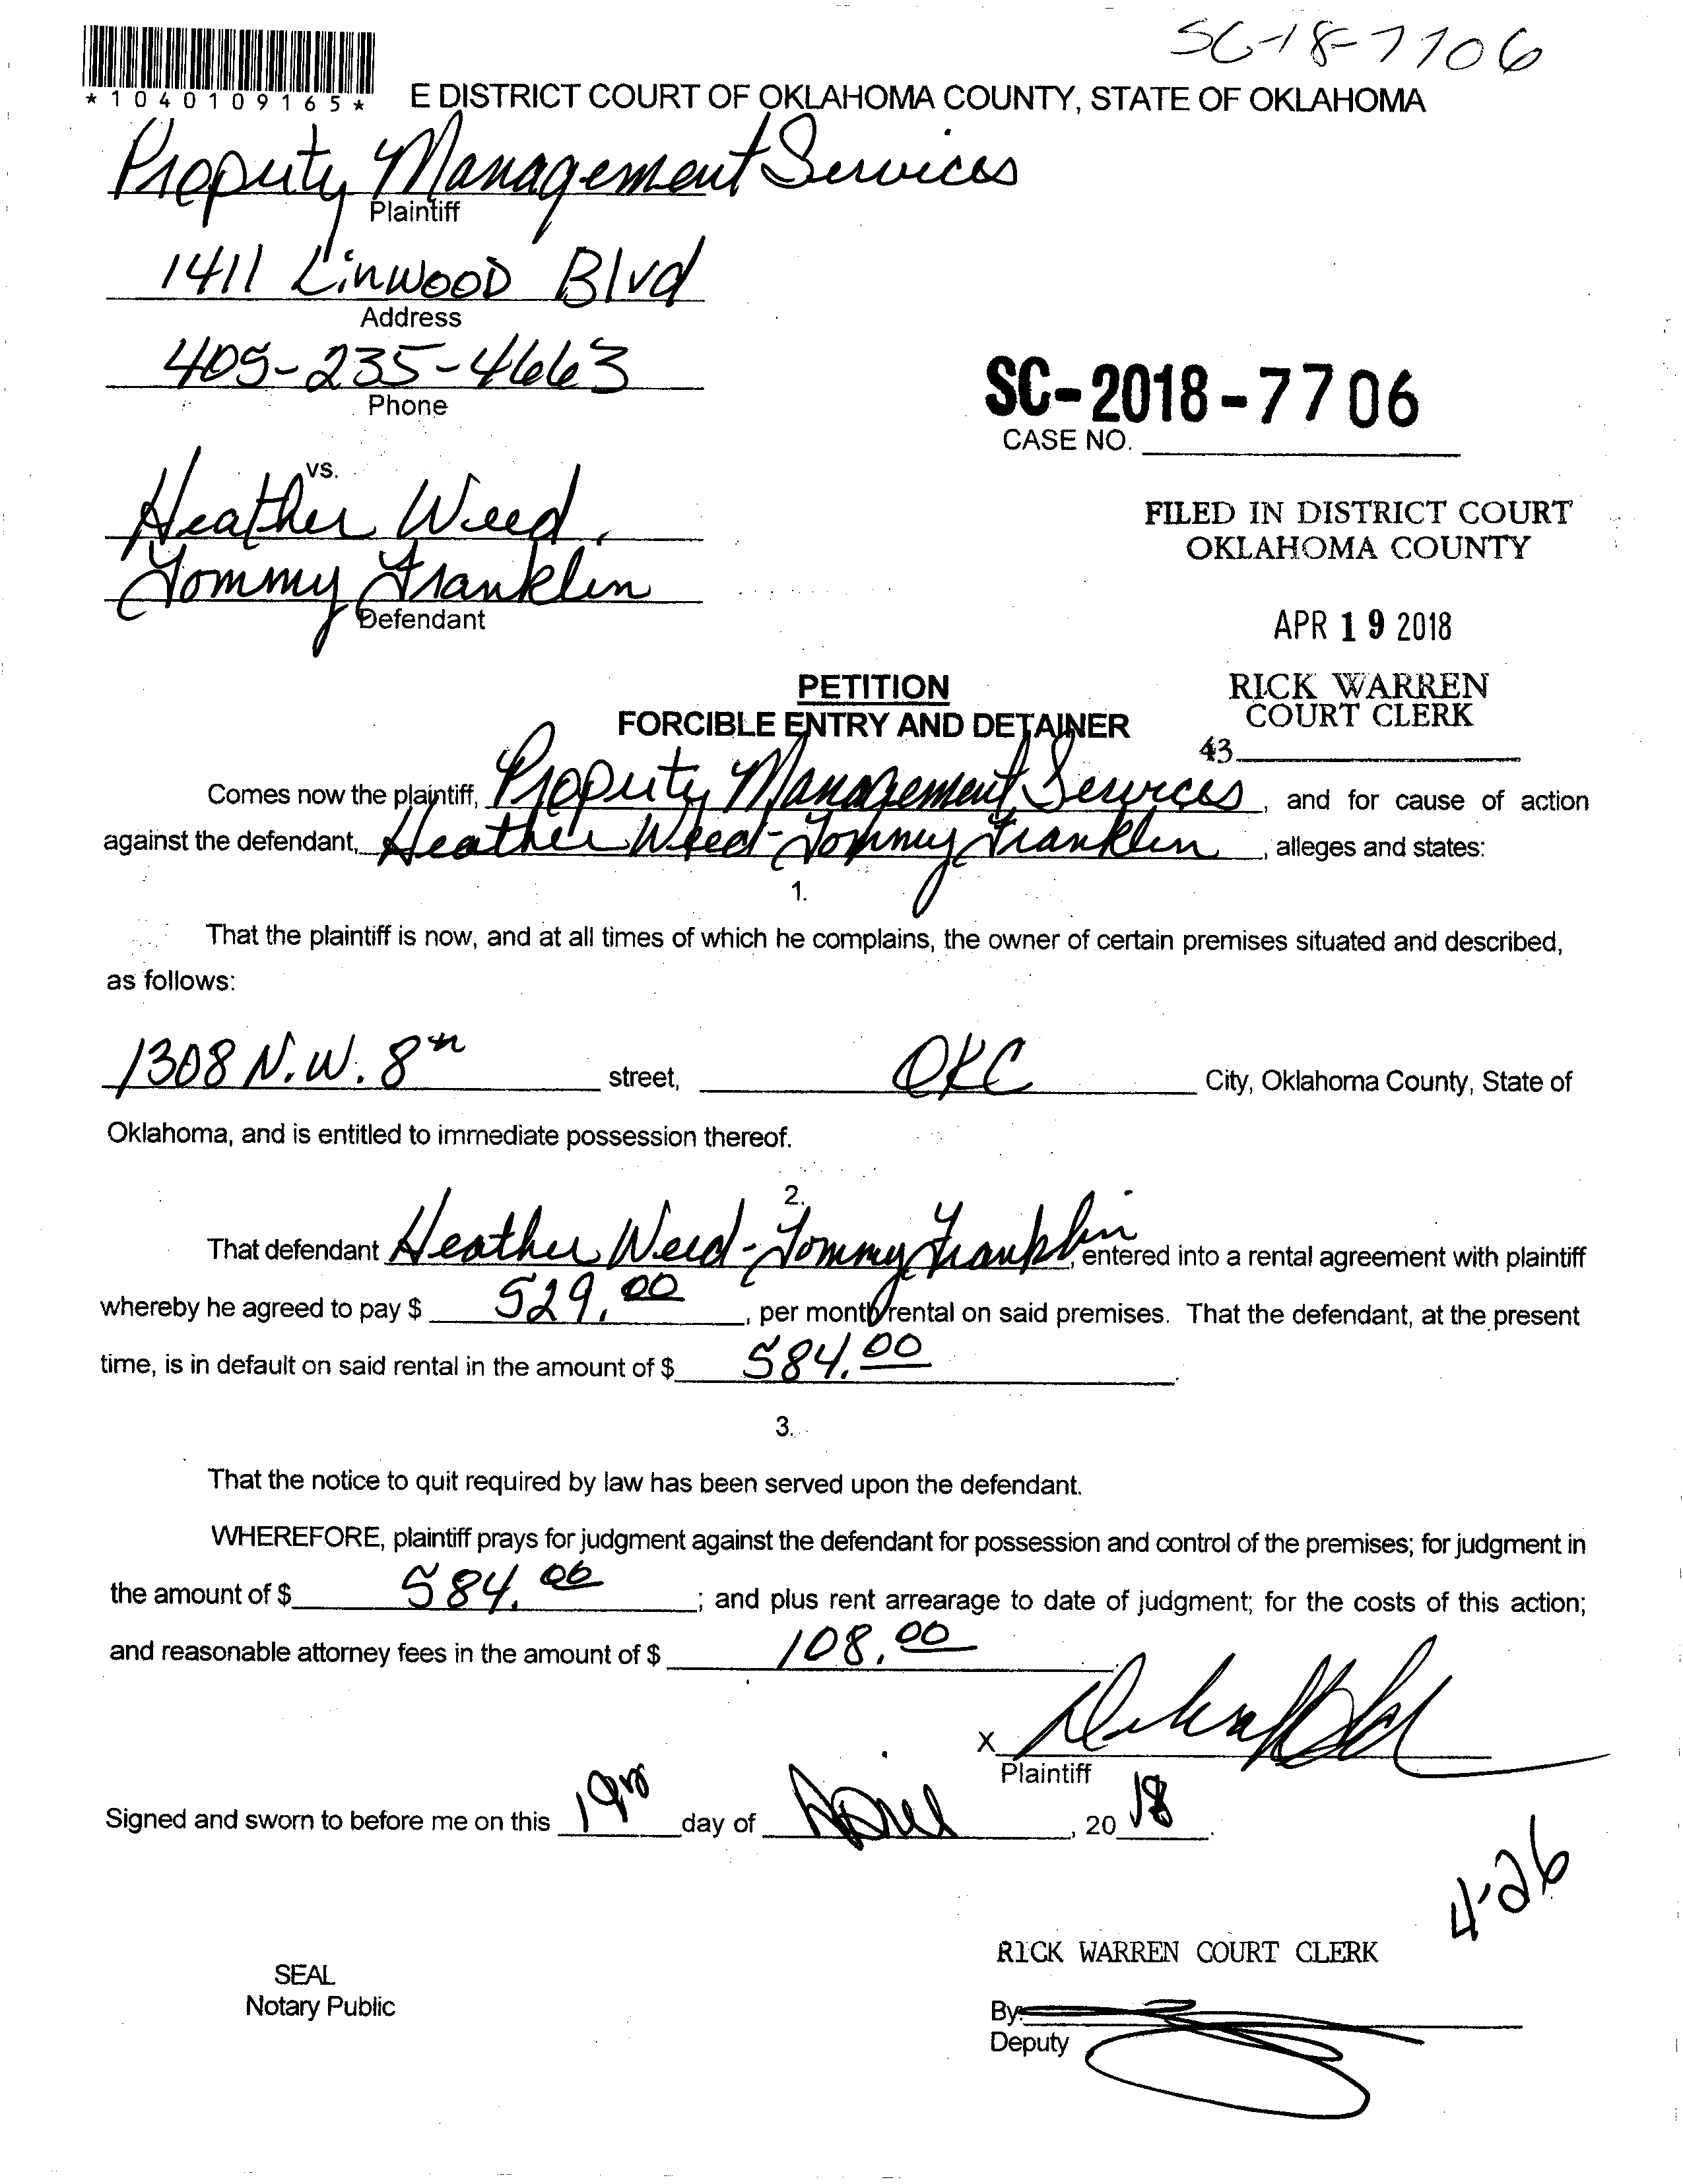 SC-18-7706
*1040109165*
E DISTRICT COURT OF OKLAHOMA COUNTY, STATE OF OKLAHOMA
Property Management Services
Plaintiff
1411 Linwood Blvd
Address
405-235-4663
Phone
SC-2018-7706
CASE NO.
vs.
Heather Weed,
Tommy Franklin
Defendant
FILED IN DISTRICT COURT
OKLAHOMA COUNTY
APR 19 2018
RICK WARREN
COURT CLERK
43
PETITION
FORCIBLE ENTRY AND DETAINER
Comes now the plaintiff, Property Management Services, and for cause of action
against the defendant, Heather Weed-Tommy Franklin, alleges and states:
1.
That the plaintiff is now, and at all times of which he complains, the owner of certain premises situated and described,
as follows:
1308 N.W. 8th street, OKC City, Oklahoma County, State of
Oklahoma, and is entitled to immediate possession thereof.
2.
That defendant Heather Weed-Tommy Franklin, entered into a rental agreement with plaintiff
whereby he agreed to pay $ 529.00, per month rental on said premises. That the defendant, at the present
time, is in default on said rental in the amount of $ 584.00.
3.
That the notice to quit required by law has been served upon the defendant.
WHEREFORE, plaintiff prays for judgment against the defendant for possession and control of the premises; for judgment in
the amount of $ 584.00; and plus rent arrearage to date of judgment; for the costs of this action;
and reasonable attorney fees in the amount of $ 108.00
X
Plaintiff
Signed and sworn to before me on this 19th day of April, 2018.
4-26
RICK WARREN COURT CLERK
SEAL
Notary Public
By:
Deputy